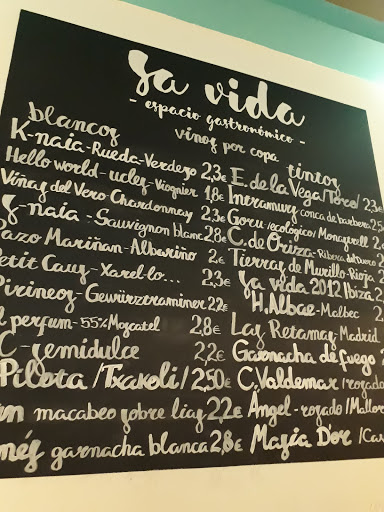 Sa vida
- espacio gastronómico -
vinos por copa
blancos
K-naia-Rueda-Verdejo 2,3€
Hello world-ucles-Viognier 1,8€
Viñas del Vero-Chardonnay 2,3€
S-naia-Sauvignon blanc 2,8€
Pazo Mariñan-Albariño 2€
Petit Caus-Xarel-lo... 2,3€
Pirineos-Gewürztraminer 2,2€
perfum-55% Moscatel 2,8€
C-semidulce 2,2€
Pilota /Txakoli/ 2,50€
macabeo sobre lias 2,2€
garnacha blanca 2,8€
tintos
E. de la Vega/Toro/ 2,3€
Intramurs conca de barbera 2,5
Goru /ecológico/ Monastrell
C. de Oriza-Ribera del Duero
Tierras de Murillo-Rioja
Sa vida 2012 Ibiza
H. Albae-Malbec 2
Las Retamas-Madrid
Garnacha de fuego
C. Valdemar /rosado
Ángel-rosado /Mallor
Magia D'or /Cav